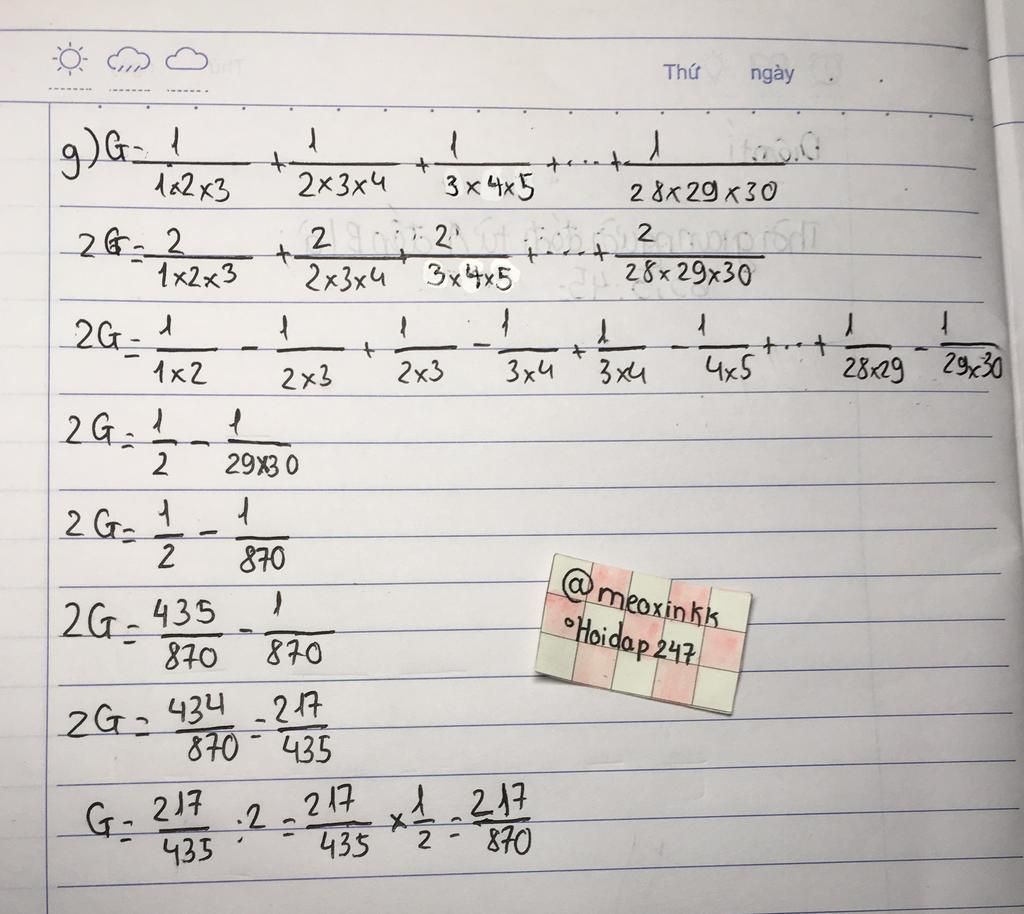 Thứ ngày . .
g) G = 1/(1×2×3) + 1/(2×3×4) + 1/(3×4×5) + ... + 1/(28×29×30)
2G = 2/(1×2×3) + 2/(2×3×4) + 2/(3×4×5) + ... + 2/(28×29×30)
2G = 1/(1×2) - 1/(2×3) + 1/(2×3) - 1/(3×4) + 1/(3×4) - 1/(4×5) + ... + 1/(28×29) - 1/(29×30)
2G = 1/2 - 1/(29×30)
2G = 1/2 - 1/870
2G = 435/870 - 1/870
2G = 434/870 = 217/435
G = 217/435 : 2 = 217/435 × 1/2 = 217/870
@meoxinkk
•Hoidap247